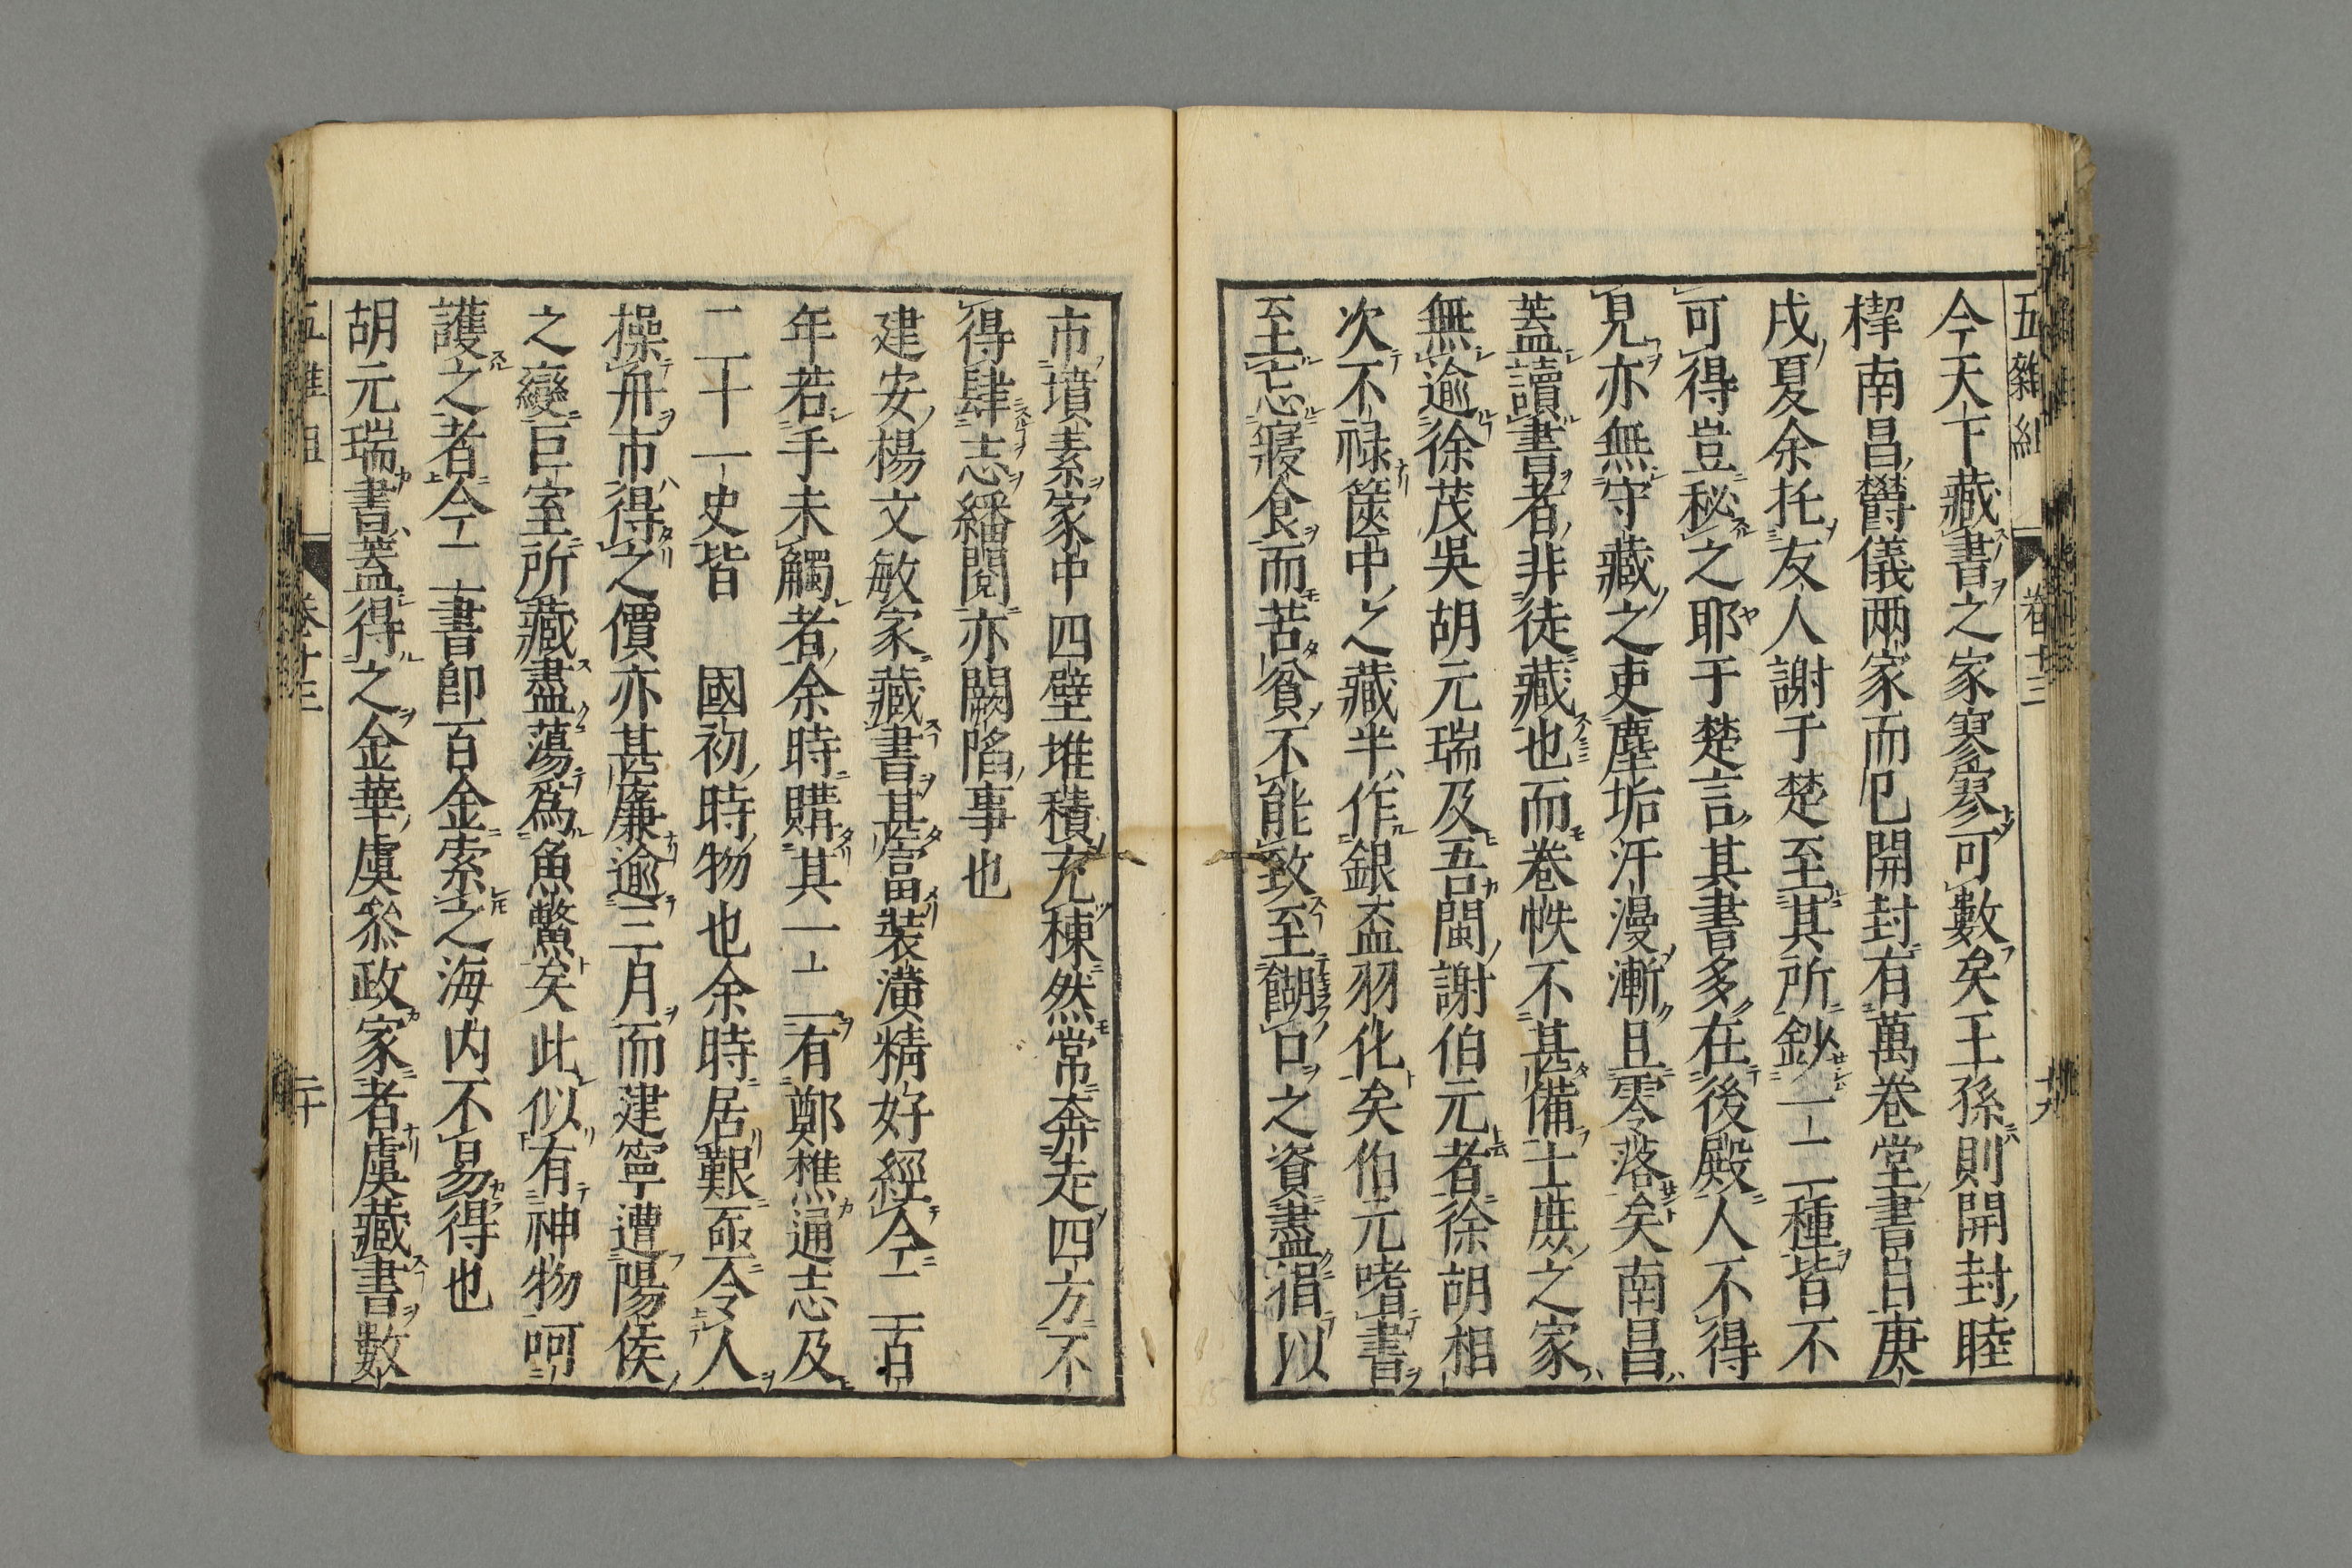 五雜組 卷十三 十九
今天下藏書之家寥寥可數矣王孫則開封睦
㮮南昌欝儀兩家而已開封有萬卷堂書目庚
戌夏余托友人謝于楚至其所鈔一二種皆不
可得豈秘之耶于楚言其書多在後殿人不得
見亦無守藏之吏塵垢汗漫漸且零落矣南昌
蓋讀書者非徒藏也而卷帙不甚備士庶之家
無逾徐茂吳胡元瑞及吾閩謝伯元者徐胡相
次不禄篋中之藏半作銀盃羽化矣伯元嗜書
至忘寢食而苦貧不能致至餬口之資盡捐以
市墳素家中四壁堆積充棟然常奔走四方不
得肆志繙閱亦闕陷事也
建安楊文敏家藏書甚富裝潢精好經今二百
年若手未觸者余時購其一二有鄭樵通志及
二十一史皆 國初時物也余時居艱亟令人
操舟市得之價亦甚廉逾三月而建寧遭陽侯
之變巨室所藏盡蕩為魚鱉矣此似有神物呵
護之者今二書卽百金索之海内不易得也
胡元瑞書蓋得之金華虞叅政家者虞藏書數
五雜組 卷十三 二十